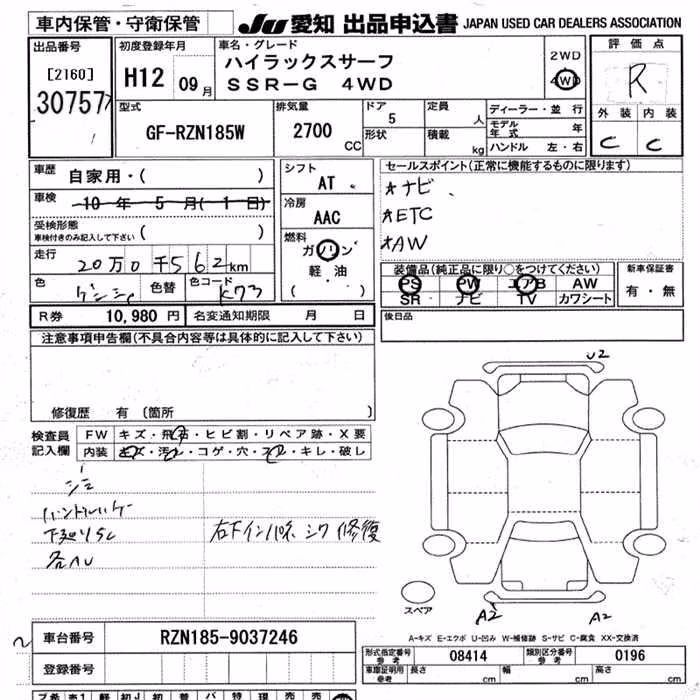 車内保管・守衛保管
JU 愛知 出品申込書 JAPAN USED CAR DEALERS ASSOCIATION
出品番号
[2160]
30757
初度登録年月
H12 09月
車名・グレード
ハイラックスサーフ
SSR-G 4WD
2WD
4WD
評価点
R
外装 内装
C C
型式
GF-RZN185W
排気量
2700 CC
ドア
5
形状
定員
人
積載
kg
ディーラー・並行
モデル年式 年
ハンドル 左・右
車歴 自家用・( )
車検 10 年 5 月( 1 日)
受検形態
車検付きのみ記入して下さい ( )
走行 20万0千562km
色 色替 色コード K73
シフト
AT
冷房
AAC
燃料
ガソリン
軽・油
( )
セールスポイント(正常に機能するものに限ります)
★ナビ
★ETC
★AW
装備品(純正品に限り○をつけてください)
PS PW エアB AW
SR ナビ TV カワシート
新車保証書
有・無
R券 10,980円 名変通知期限 月 日
後日品
注意事項申告欄(不具合内容等は具体的に記入して下さい)
修復歴 有 〔箇所 〕
検査員記入欄
FW キズ・飛石・ヒビ割・リペア跡・X要
内装 キズ・汚れ・コゲ・穴・スレ・キレ・破し
ハンドルハゲ
下廻りSC
各AU
右下インパネ シワ 修復
U2
スペア
A2 A2
A-キズ E-エクボ U-凹み W-補修跡 S-サビ C-腐食 XX-交換済
車台番号 RZN185-9037246
登録番号
形式指定番号 参考 08414 類別区分番号 参考 0196
車庫証明用 参考 長さ cm 幅 cm 高さ cm